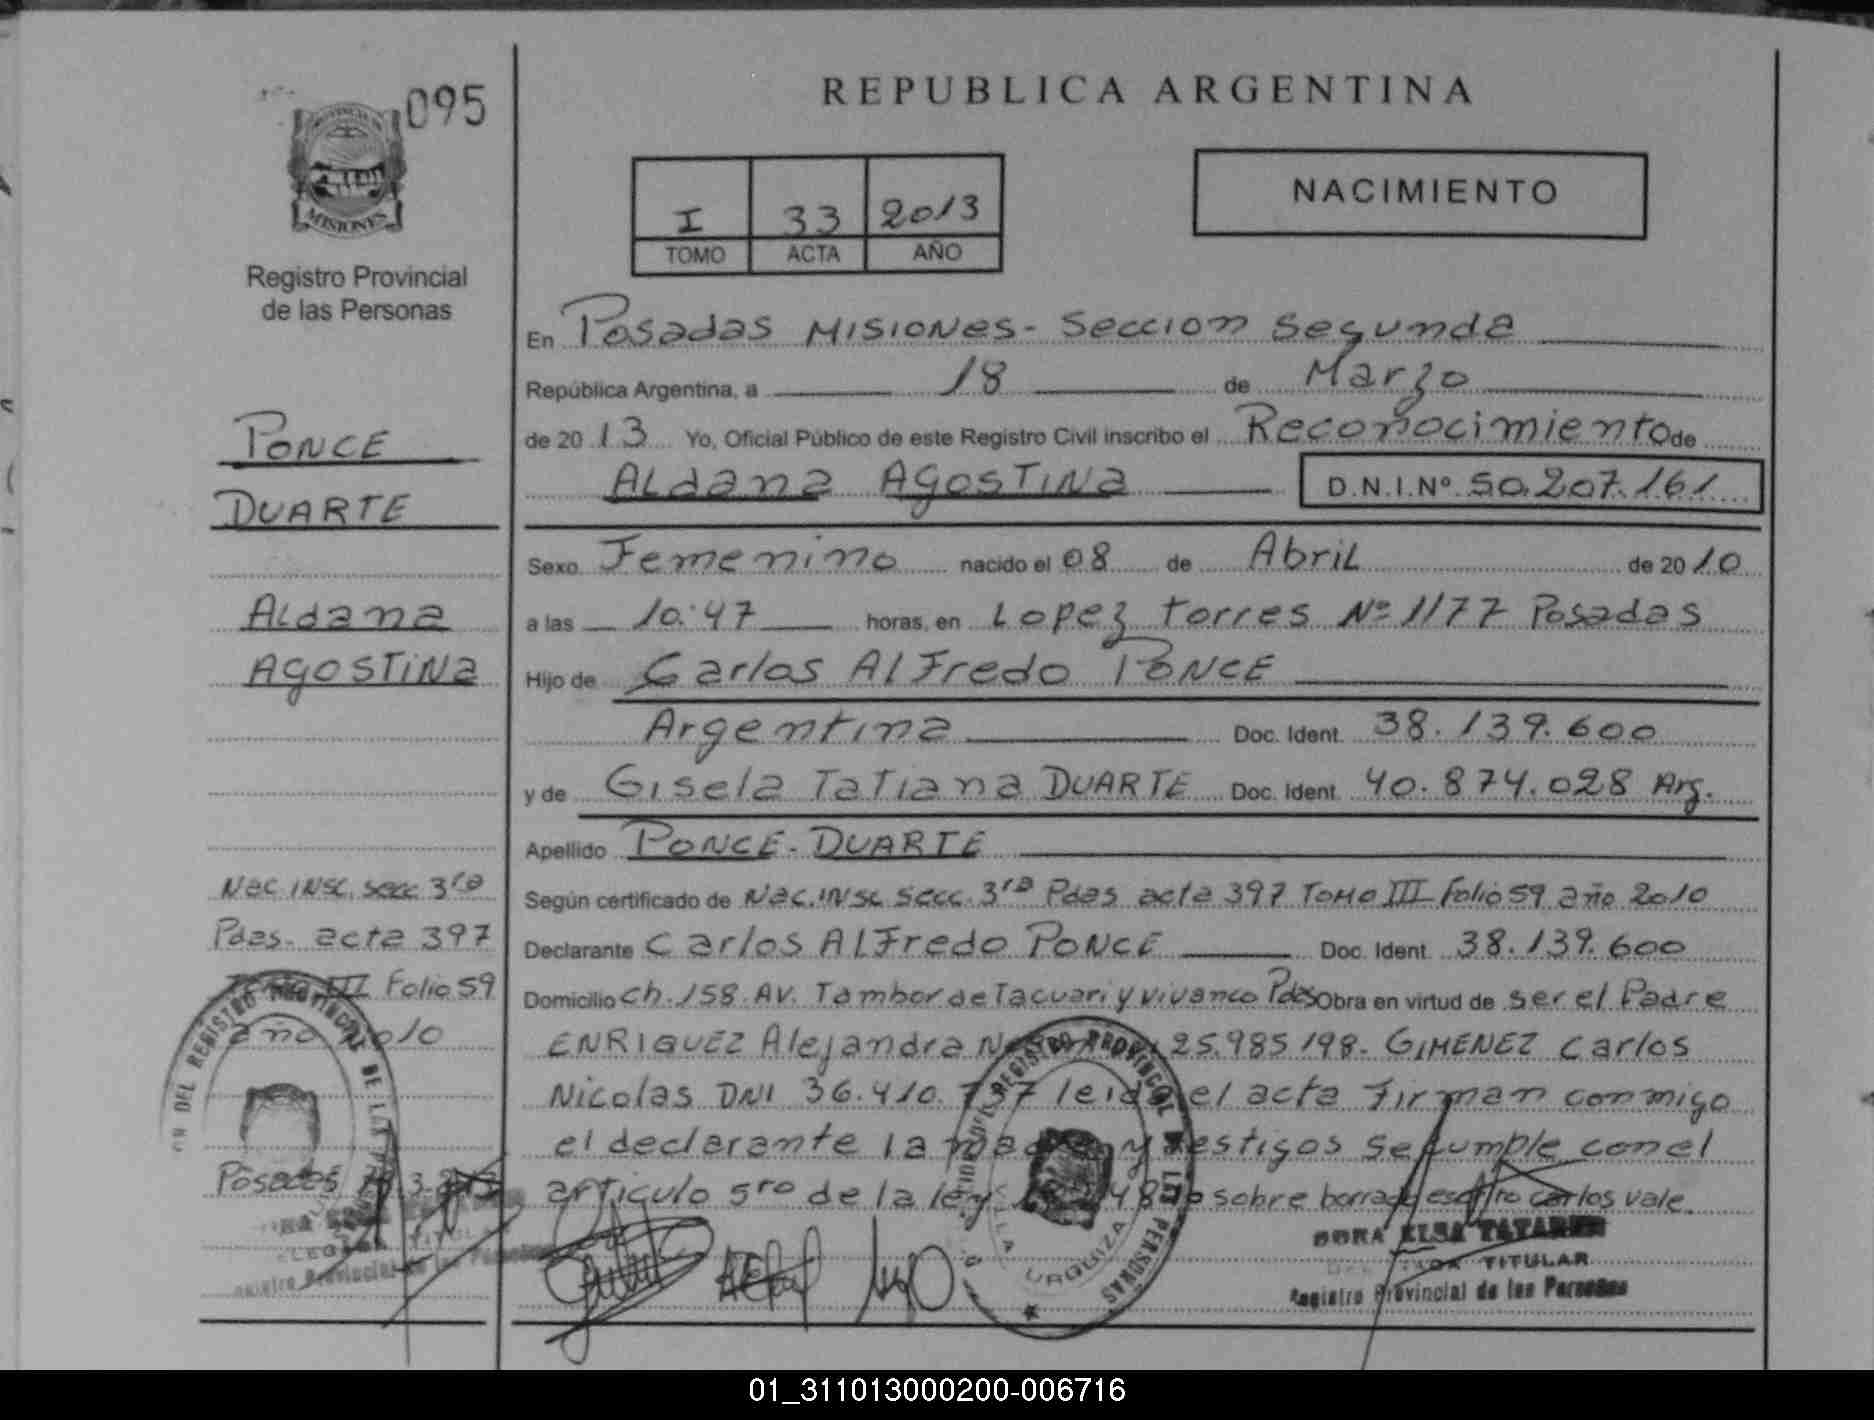 095
MISIONES
Registro Provincial
de las Personas
PONCE
DUARTE
ALdana
AgosTiNa
Nac. iNsc. secc. 3ra
Pdas. acta 397
III Folio 59
año
Posadas
REPUBLICA ARGENTINA
I 33 2013
TOMO ACTA AÑO
NACIMIENTO
En Posadas Misiones - Seccion Segunda
República Argentina, a 18 de Marzo
de 20 13 Yo, Oficial Público de este Registro Civil inscribo el Reconocimiento de
ALdana AgosTiNa D.N.I.Nº 50.207.161
Sexo Femenino nacido el 08 de Abril de 20 10
a las 10:47 horas, en Lopez Torres Nº 1177 Posadas
Hijo de Carlos ALFredo PONCE
Argentina Doc. Ident. 38.139.600
y de Gisela TaTiana DUARTE Doc. Ident. 40.874.028 Arg.
Apellido PONCE - DUARTE
Según certificado de Nac. iNsc secc. 3ra Pdas acta 397 TOMO III Folio 59 año 2010
Declarante Carlos ALFredo PONCE Doc. Ident. 38.139.600
Domicilio Ch. 158 AV. Tambor de Tacuari y Vivanco Pdas Obra en virtud de ser el Padre
ENRIQUEZ Alejandra 25.985.198. GIMENEZ Carlos
Nicolas DNI 36.410.737 leida el acta Firman conmigo
el declarante la madre y testigos se cumple con el
articulo 5to de la ley sobre borrado escrito carlos vale.
REGISTRO PROVINCIAL DE LAS PERSONAS
VILLA URQUIZA
DORA ELSA
TITULAR
Registro Provincial de las Personas
01_311013000200-006716